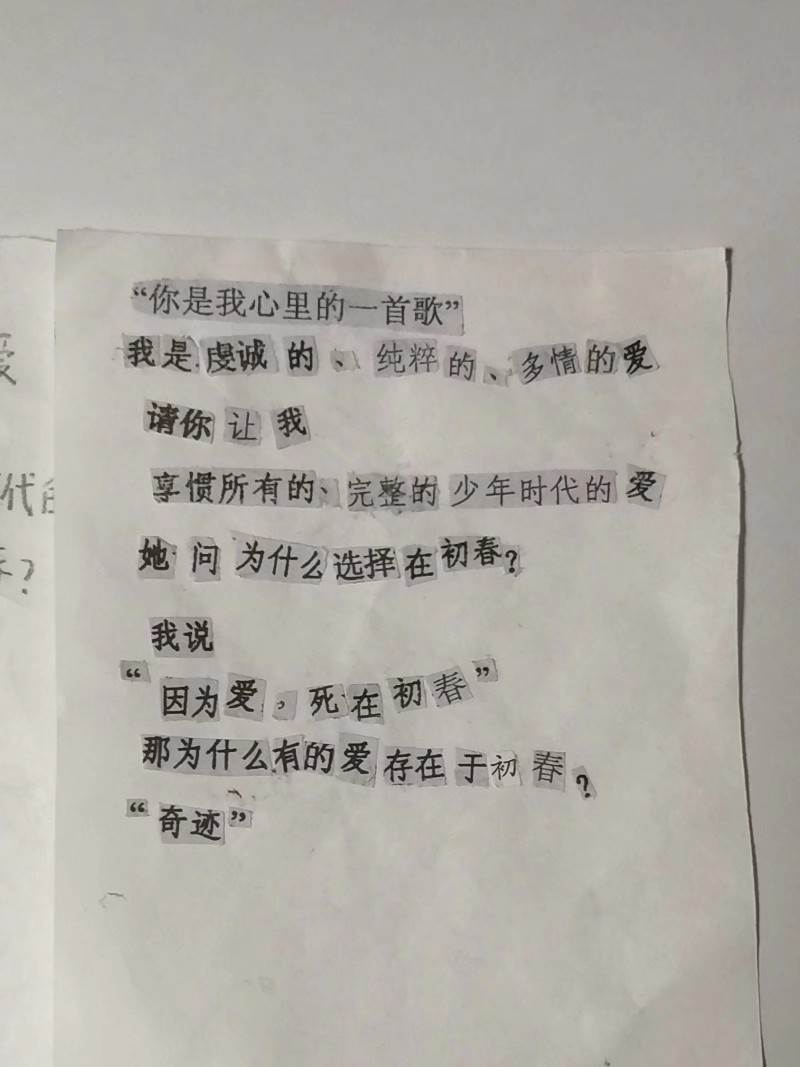 “你是我心里的一首歌”
我是虔诚的、纯粹的、多情的爱
请你让我
享惯所有的、完整的少年时代的爱
她问为什么选择在初春？
我说
“因为爱，死在初春”
那为什么有的爱存在于初春？
“奇迹”
爱
代
？